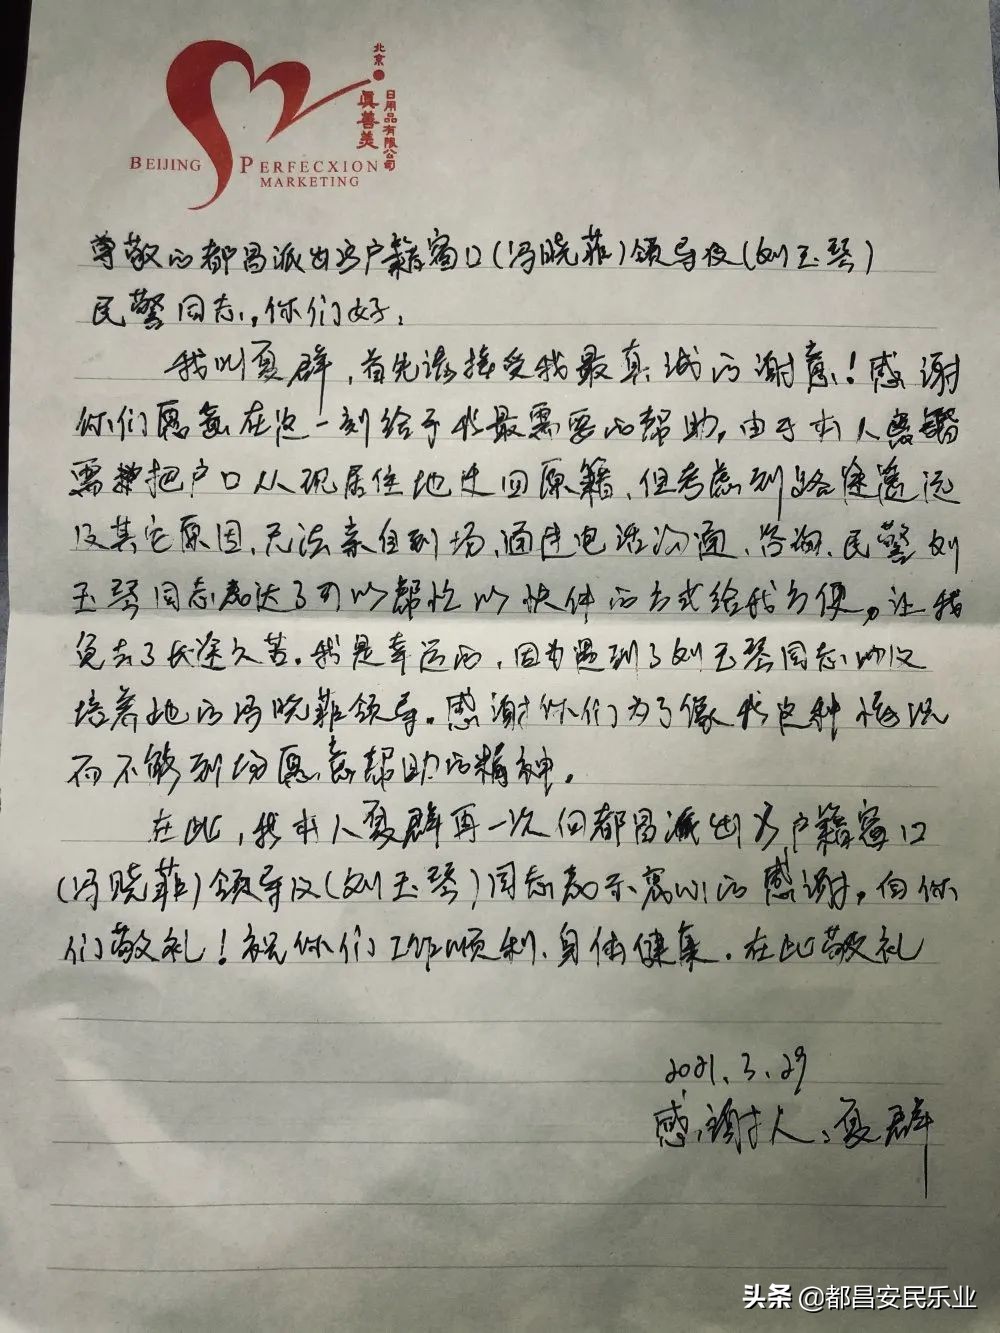 北京
真善美
日用品有限公司
BEIJING PERFECXION
MARKETING
尊敬的都昌派出所户籍窗口(冯晓菲)领导及(刘玉琴)
民警同志，你们好：
我叫夏群，首先请接受我最真诚的谢意！感谢
你们愿意在这一刻给予我最需要的帮助。由于本人
需要把户口从现居住地迁回原籍、但考虑到路途遥远
及其它原因、无法亲自到场、通过电话沟通、咨询、民警刘
玉琴同志表达了可以帮忙以快件的方式给我方便，让我
免去了长途之苦。我是幸运的，因为遇到了刘玉琴同志以及
培养她的冯晓菲领导。感谢你们为了像我这种情况
而不能到场愿意帮助的精神。
在此，我本人夏群再一次向都昌派出所户籍窗口
(冯晓菲)领导及(刘玉琴)同志表示衷心的感谢，向你
们敬礼！祝你们工作顺利、身体健康。在此敬礼
2021.3.29
感谢人：夏群
头条 @都昌安民乐业